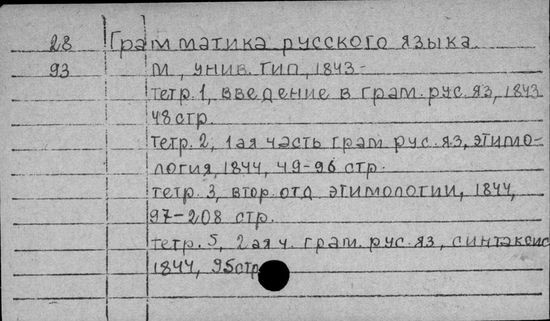 28 Грамматика русского языка.
93 М., унив. тип., 1843-
тетр. 1, введение в грам. рус. яз., 1843
48 стр.
тетр. 2, 1ая часть грам. рус. яз., этимо-
логия, 1844, 49-96 стр.
тетр. 3, втор. отд. этимологии, 1844,
97-208 стр.
тетр. 5, 2ая ч. грам. рус. яз., синтаксис
1844, 95 стр